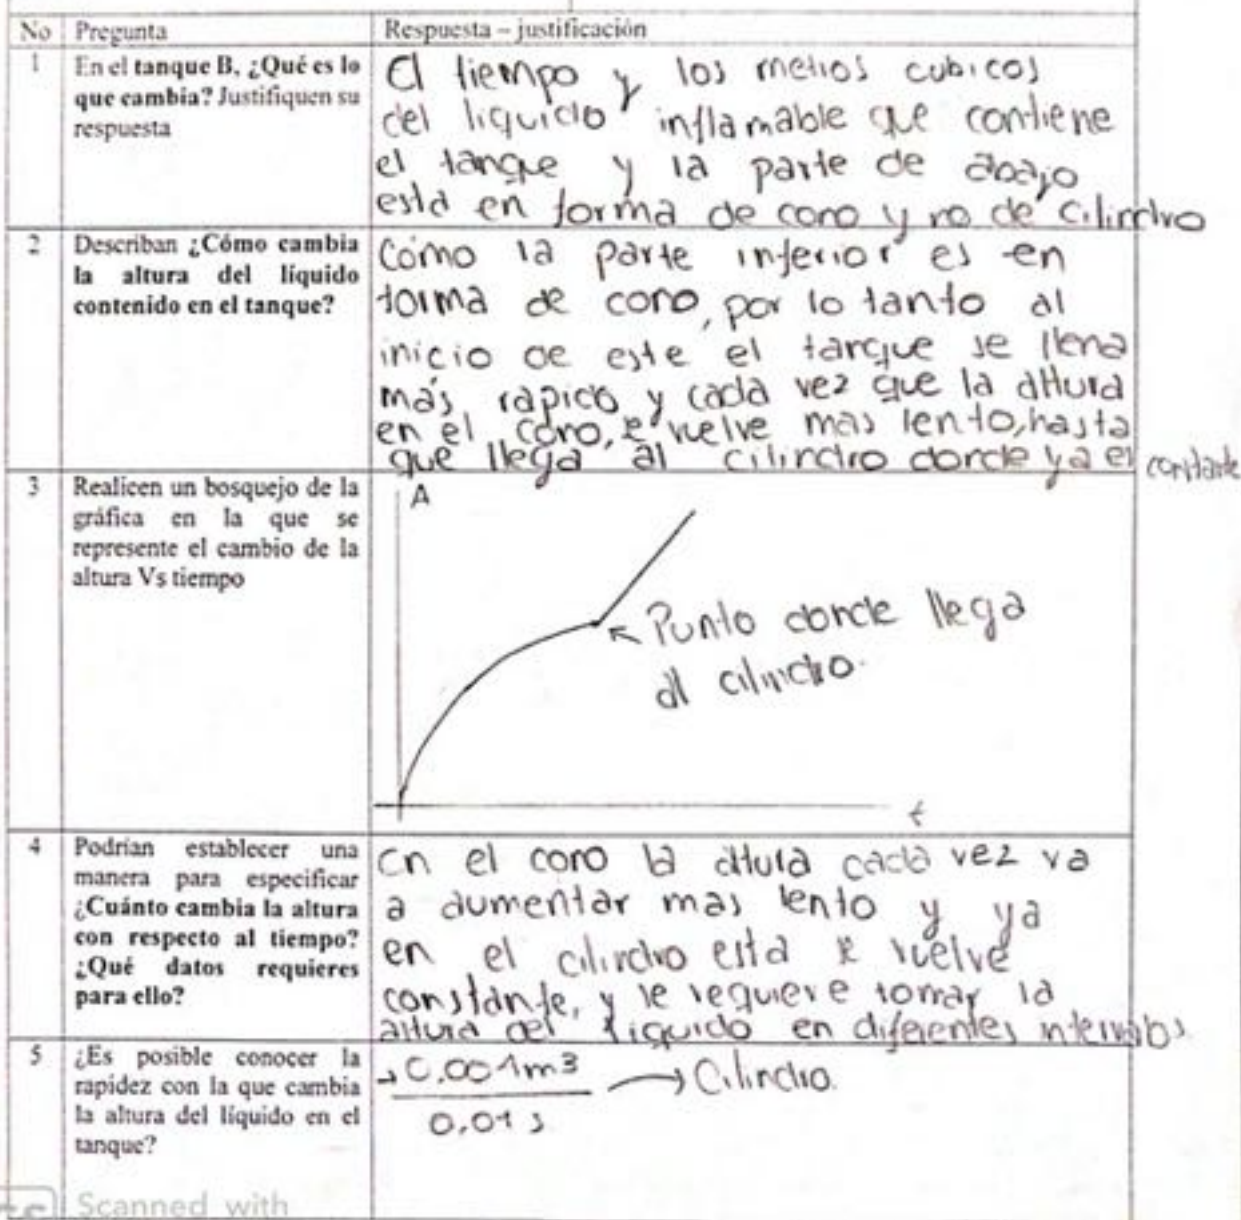 No Pregunta Respuesta – justificación
1 En el tanque B, ¿Qué es lo
que cambia? Justifiquen su
respuesta
El tiempo y los metros cubicos
del liquido inflamable que contiene
el tanque y la parte de abajo
está en forma de cono y no de cilindro
2 Describan ¿Cómo cambia
la altura del líquido
contenido en el tanque?
Cómo la parte inferior es en
forma de cono, por lo tanto al
inicio de este el tanque se llena
más rapido y cada vez que la altura
en el cono, se vuelve mas lento, hasta
que llega al cilindro donde ya es constante
3 Realicen un bosquejo de la
gráfica en la que se
represente el cambio de la
altura Vs tiempo
A
Punto donde llega
al cilindro.
t
4 Podrían establecer una
manera para especificar
¿Cuánto cambia la altura
con respecto al tiempo?
¿Qué datos requieres
para ello?
En el cono la altura cada vez va
a aumentar mas lento y ya
en el cilindro esta se vuelve
constante, y se requiere tomar la
altura del liquido en diferentes intervalos
5 ¿Es posible conocer la
rapidez con la que cambia
la altura del líquido en el
tanque?
→ 0.001m3 → Cilindro.
0,01 s
Scanned with